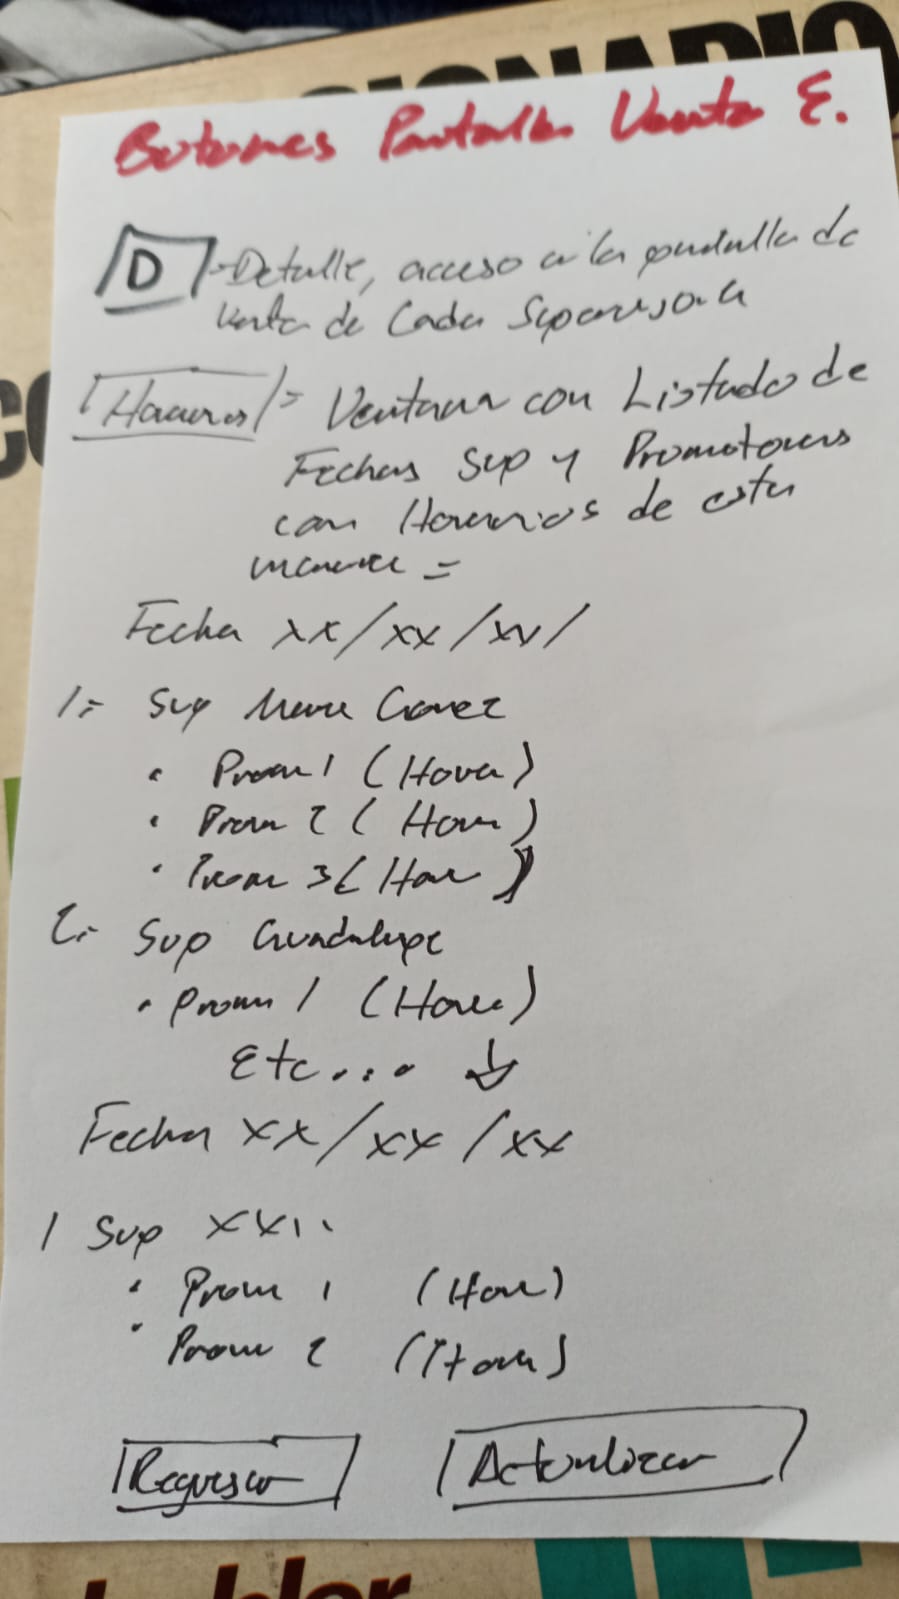 CIONADIO
Botones Pantalla Venta E.
D - Detalle, acceso a la pantalla de
Venta de Cada Supervisora
Horarios = Ventana con Listado de
Fechas Sup y Promotores
con Horarios de esta
manera =
Fecha xx/xx/xx/
1.- Sup
• Prom 1 (Hora)
• Prom 2 (Hora)
• Prom 3 (Hora)
2.- Sup Guadalupe
• Prom 1 (Hora)
Etc....
Fecha xx/xx/xx
1 Sup xxx..
• Prom 1 (Hora)
• Prom 2 (Hora)
Regresar Actualizar